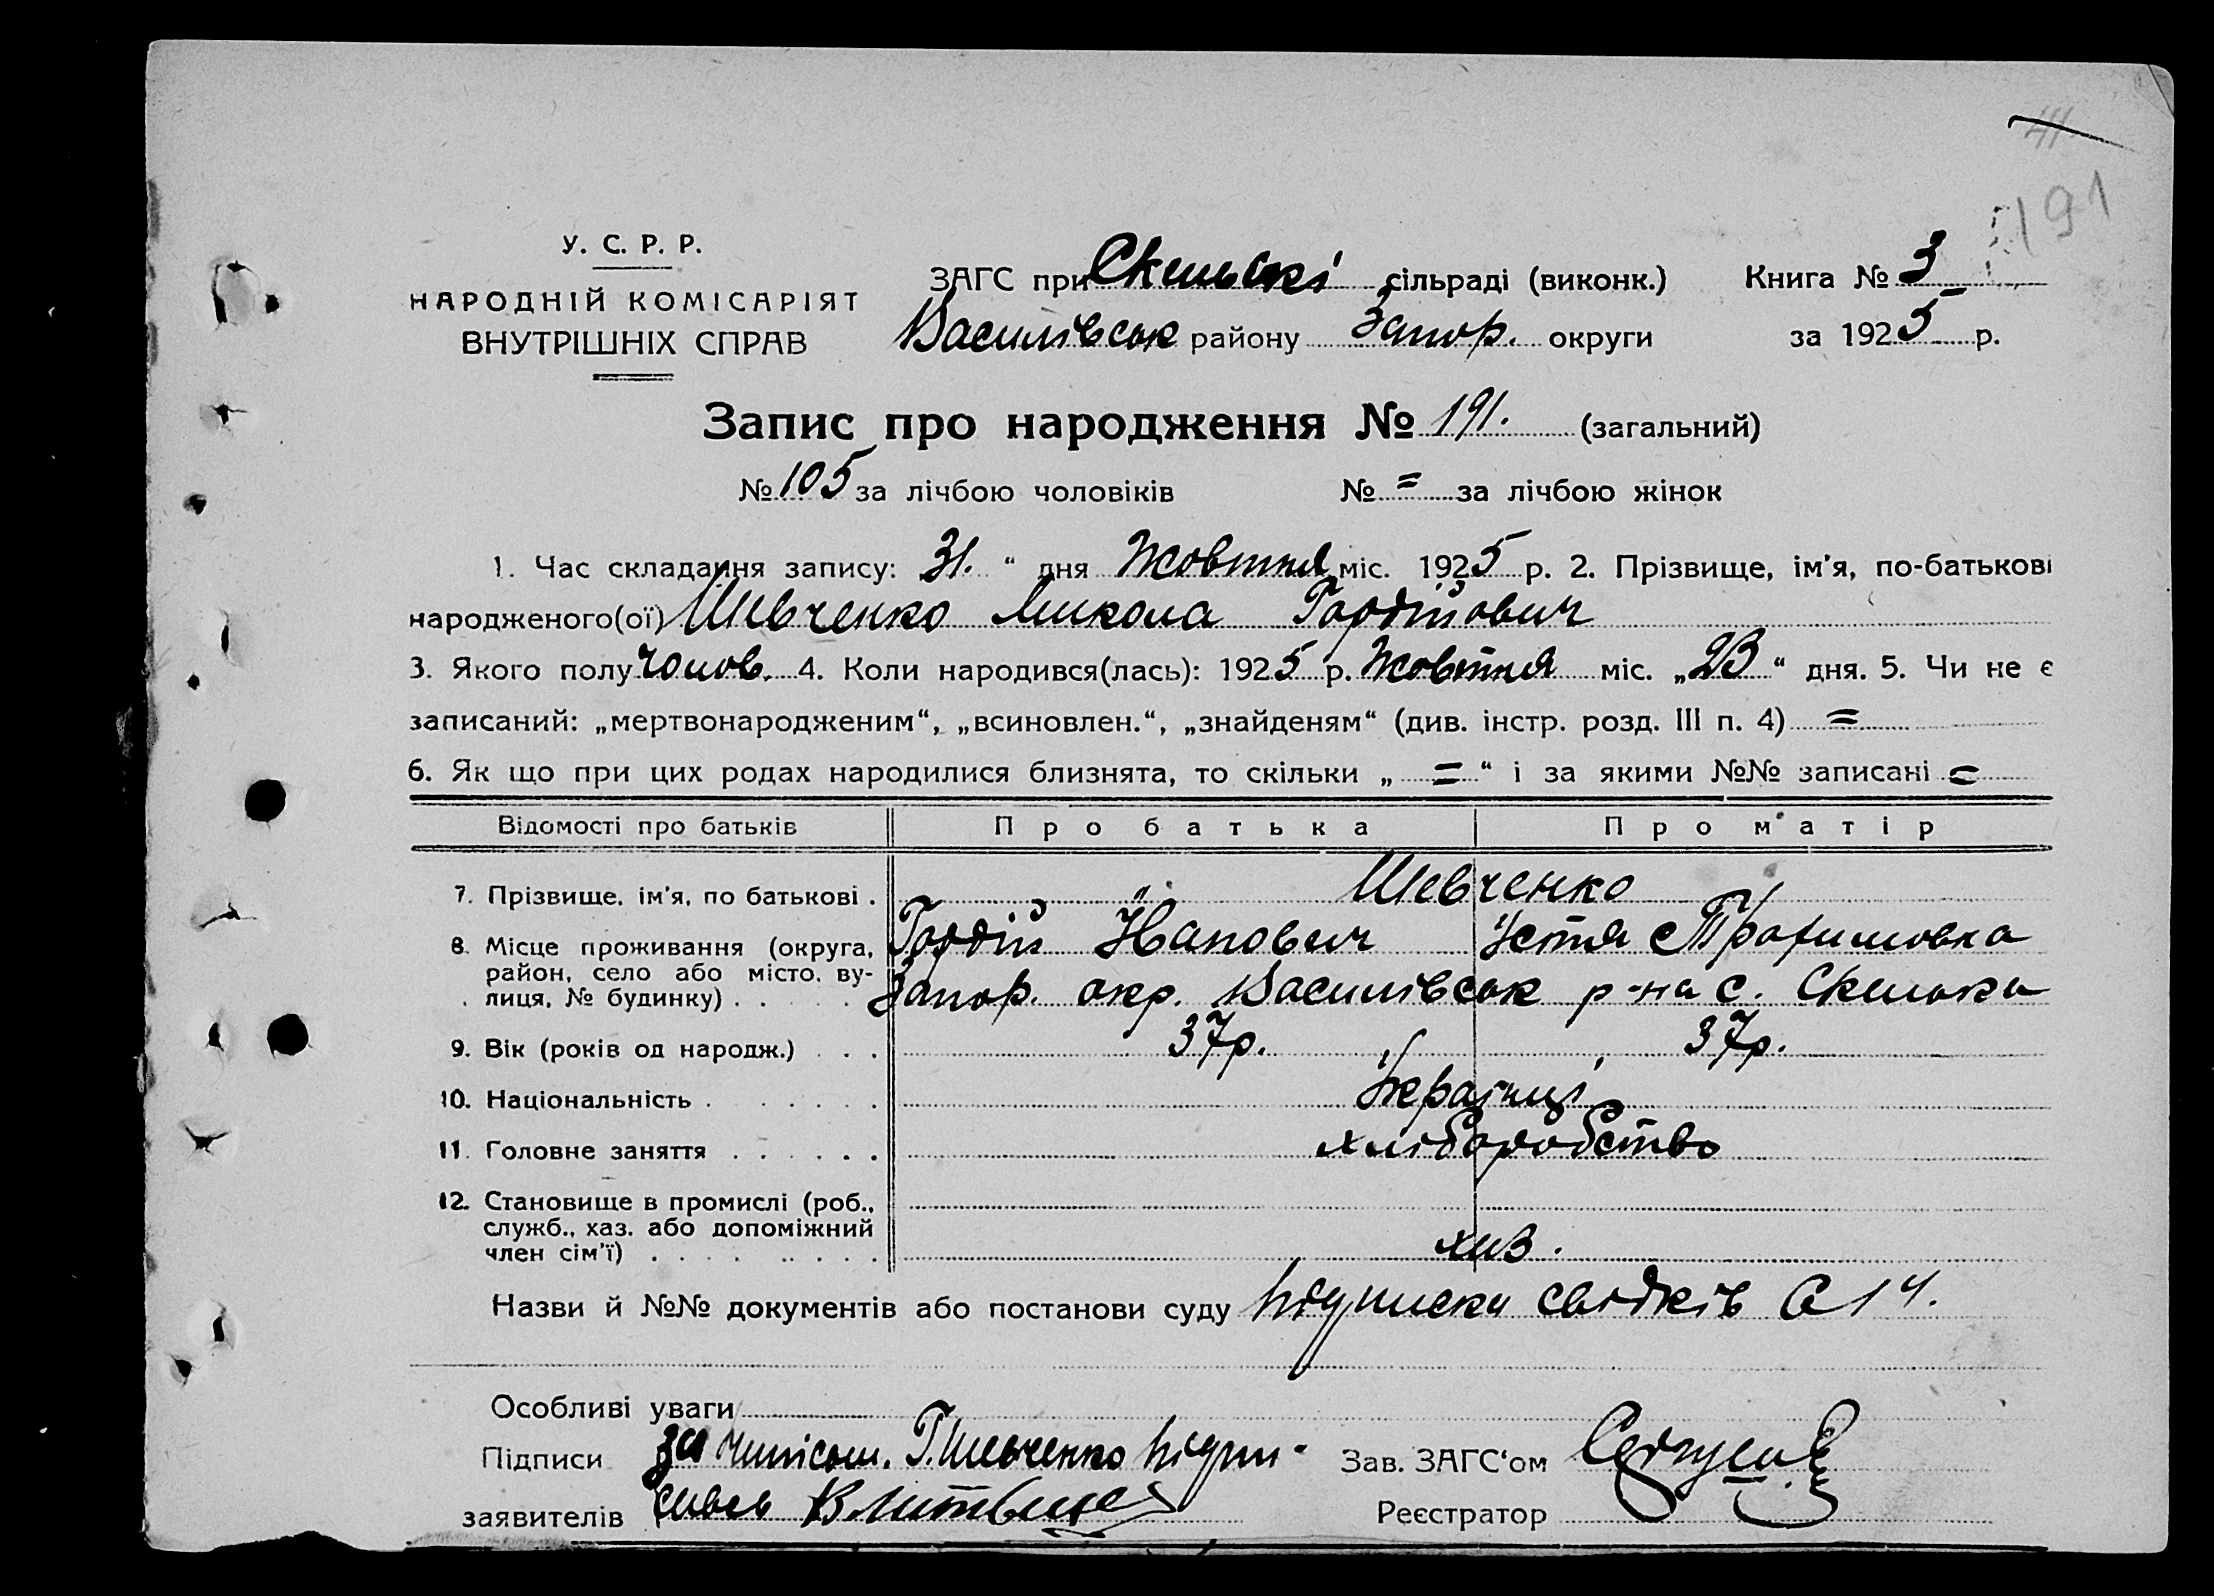 191
У. С. Р. Р.
НАРОДНІЙ КОМІСАРІЯТ
ВНУТРІШНІХ СПРАВ
ЗАГС при Скельскі сільраді (виконк.) Книга № 3
Василівськ району Запор. округи за 1925 р.
Запис про народження № 191. (загальний)
№ 105 за лічбою чоловіків № = за лічбою жінок
1. Час складання запису: 31. “ дня Жовтня міс. 1925 р. 2. Прізвище, ім'я, по-батькові
народженого(ої) Шевченко Микола Гордійович
3. Якого полу чолов. 4. Коли народився(лась): 1925 р. Жовтня міс. „23“ дня. 5. Чи не є
записаний: „мертвонародженим“, „всиновлен.“, „знайденям“ (див. інстр. розд. III п. 4) =
6. Як що при цих родах народилися близнята, то скільки „ = “ і за якими №№ записані =
Відомості про батьків Про батька Про матір
7. Прізвище, ім'я, по батькові . Шевченко
Гордій Иванович Устя Трофимовна
8. Місце проживання (округа, район, село або місто, вулиця, № будинку) . . . Запор. окр. Василівськ р-на с. Скельки
9. Вік (років од народж.) . . . 37р. 37р.
10. Національність . . . . . . Українці
11. Головне заняття . . . . . . хліборобство
12. Становище в промислі (роб.,
служб., хаз. або допоміжний
член сім'ї) . . . . . . . . хаз.
Назви й №№ документів або постанови суду Підписка свідків
Особливі уваги
Підписи за Г. Шевченко підпи-
заявителів
Зав. ЗАГС'ом
Реєстратор